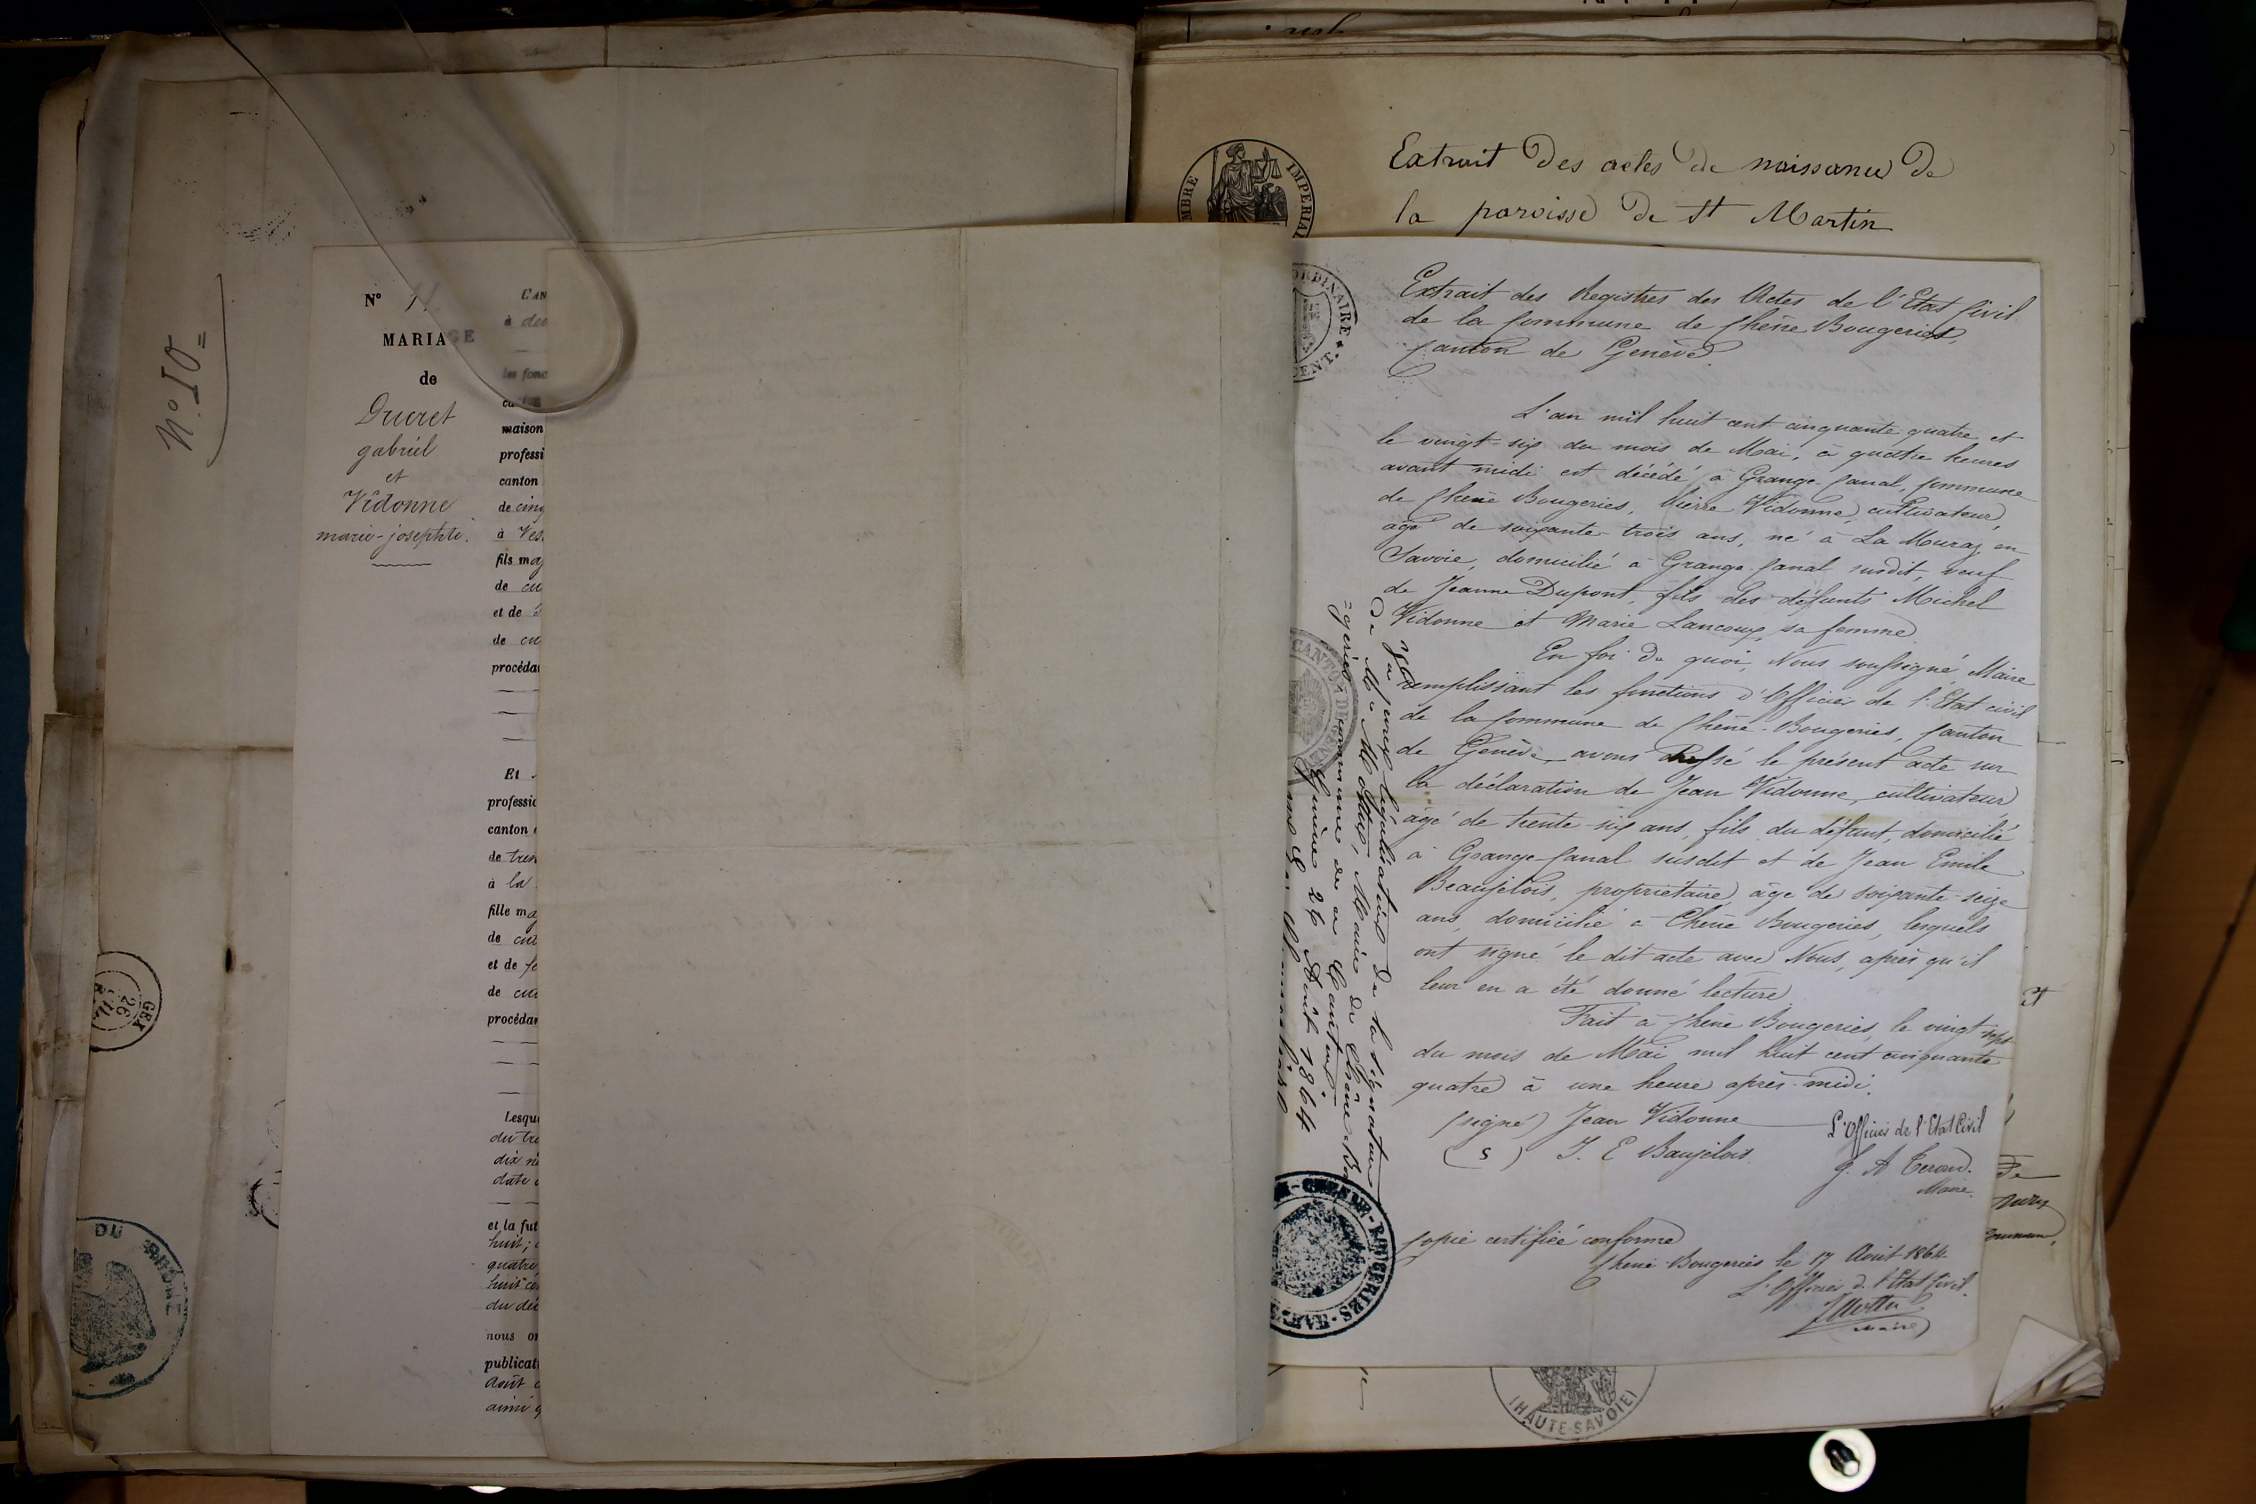 N° 10
N° 11
MARIAGE
de
Ducret
gabriel
et
Vidonne
marie-josephte.
maison
professi
canton
de cinq
à Ves
fils maj
de cu
et de
de cu
procédan
Et
professio
canton
de tren
à la
fille maj
de cul
et de
de cul
procédan
Lesqu
du tre
dix n
date
et la fut
huit;
quatre
huit ce
du déc
nous on
publicati
Août
ainsi q
GEX
26
DU RHONE
TIMBRE IMPERIAL
Extrait des actes de naissance de
la paroisse de St Martin
ORDINAIRE
Extrait des Registres des Actes de l'Etat Civil
de la Commune de Chêne Bougeries,
Canton de Genève.
L'an mil huit cent cinquante quatre et
le vingt-six du mois de Mai, à quatre heures
avant midi est décédé à Grange Canal, Commune
de Chêne Bougeries, Pierre Vidonne, cultivateur,
âgé de soixante-trois ans, né à La Muraz en
Savoie, domicilié à Grange-Canal susdit, veuf
de Jeanne Dupont, fils des défunts Michel
Vidonne et Marie Lancoux, sa femme.
En foi de quoi, Nous soussigné, Maire
remplissant les fonctions d'Officier de l'Etat civil
de la Commune de Chêne-Bougeries, Canton
de Genève, avons dressé le présent acte sur
la déclaration de Jean Vidonne, cultivateur
âgé de trente-six ans, fils du défunt, domicilié
à Grange-Canal susdit et de Jean Emile
Beaujelois, propriétaire, âgé de soixante-seize
ans, domicilié à Chêne Bougeries, lesquels
ont signé le dit acte avec Nous, après qu'il
leur en a été donné lecture
Fait à Chêne Bougeries, le vingt-sept
du mois de Mai mil huit cent cinquante
quatre à une heure après-midi.
(signé) Jean Vidonne
L'Officier de l'Etat Civil
(S) J. E Baujelois
Maire.
Copie certifiée conforme
Chêne-Bougeries le 17 Août 1864
L'Officier d. l'Etat Civil.
Maire
Vu pour légalisation de la signature
de Mr Mottu, Maire de Chêne-Bou
=geries, commune de ce Canton
Genève 26 Août 1864
CANTON DE GENEVE
CHENE-BOUGERIES
(HAUTE-SAVOIE)